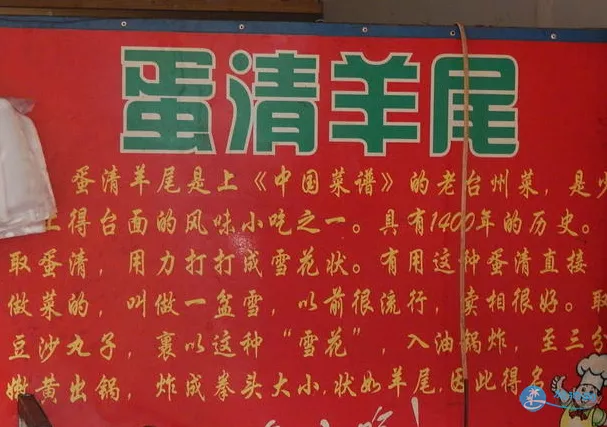 蛋清羊尾
蛋清羊尾是上《中国菜谱》的老台州菜，是少
上得台面的风味小吃之一。具有1400年的历史。
取蛋清，用力打打成雪花状。有用这种蛋清直接
做菜的，叫做一盆雪，以前很流行，卖相很好。取
豆沙丸子，裹以这种“雪花”，入油锅炸，至三分
嫩黄出锅，炸成拳头大小,状如羊尾,因此得名